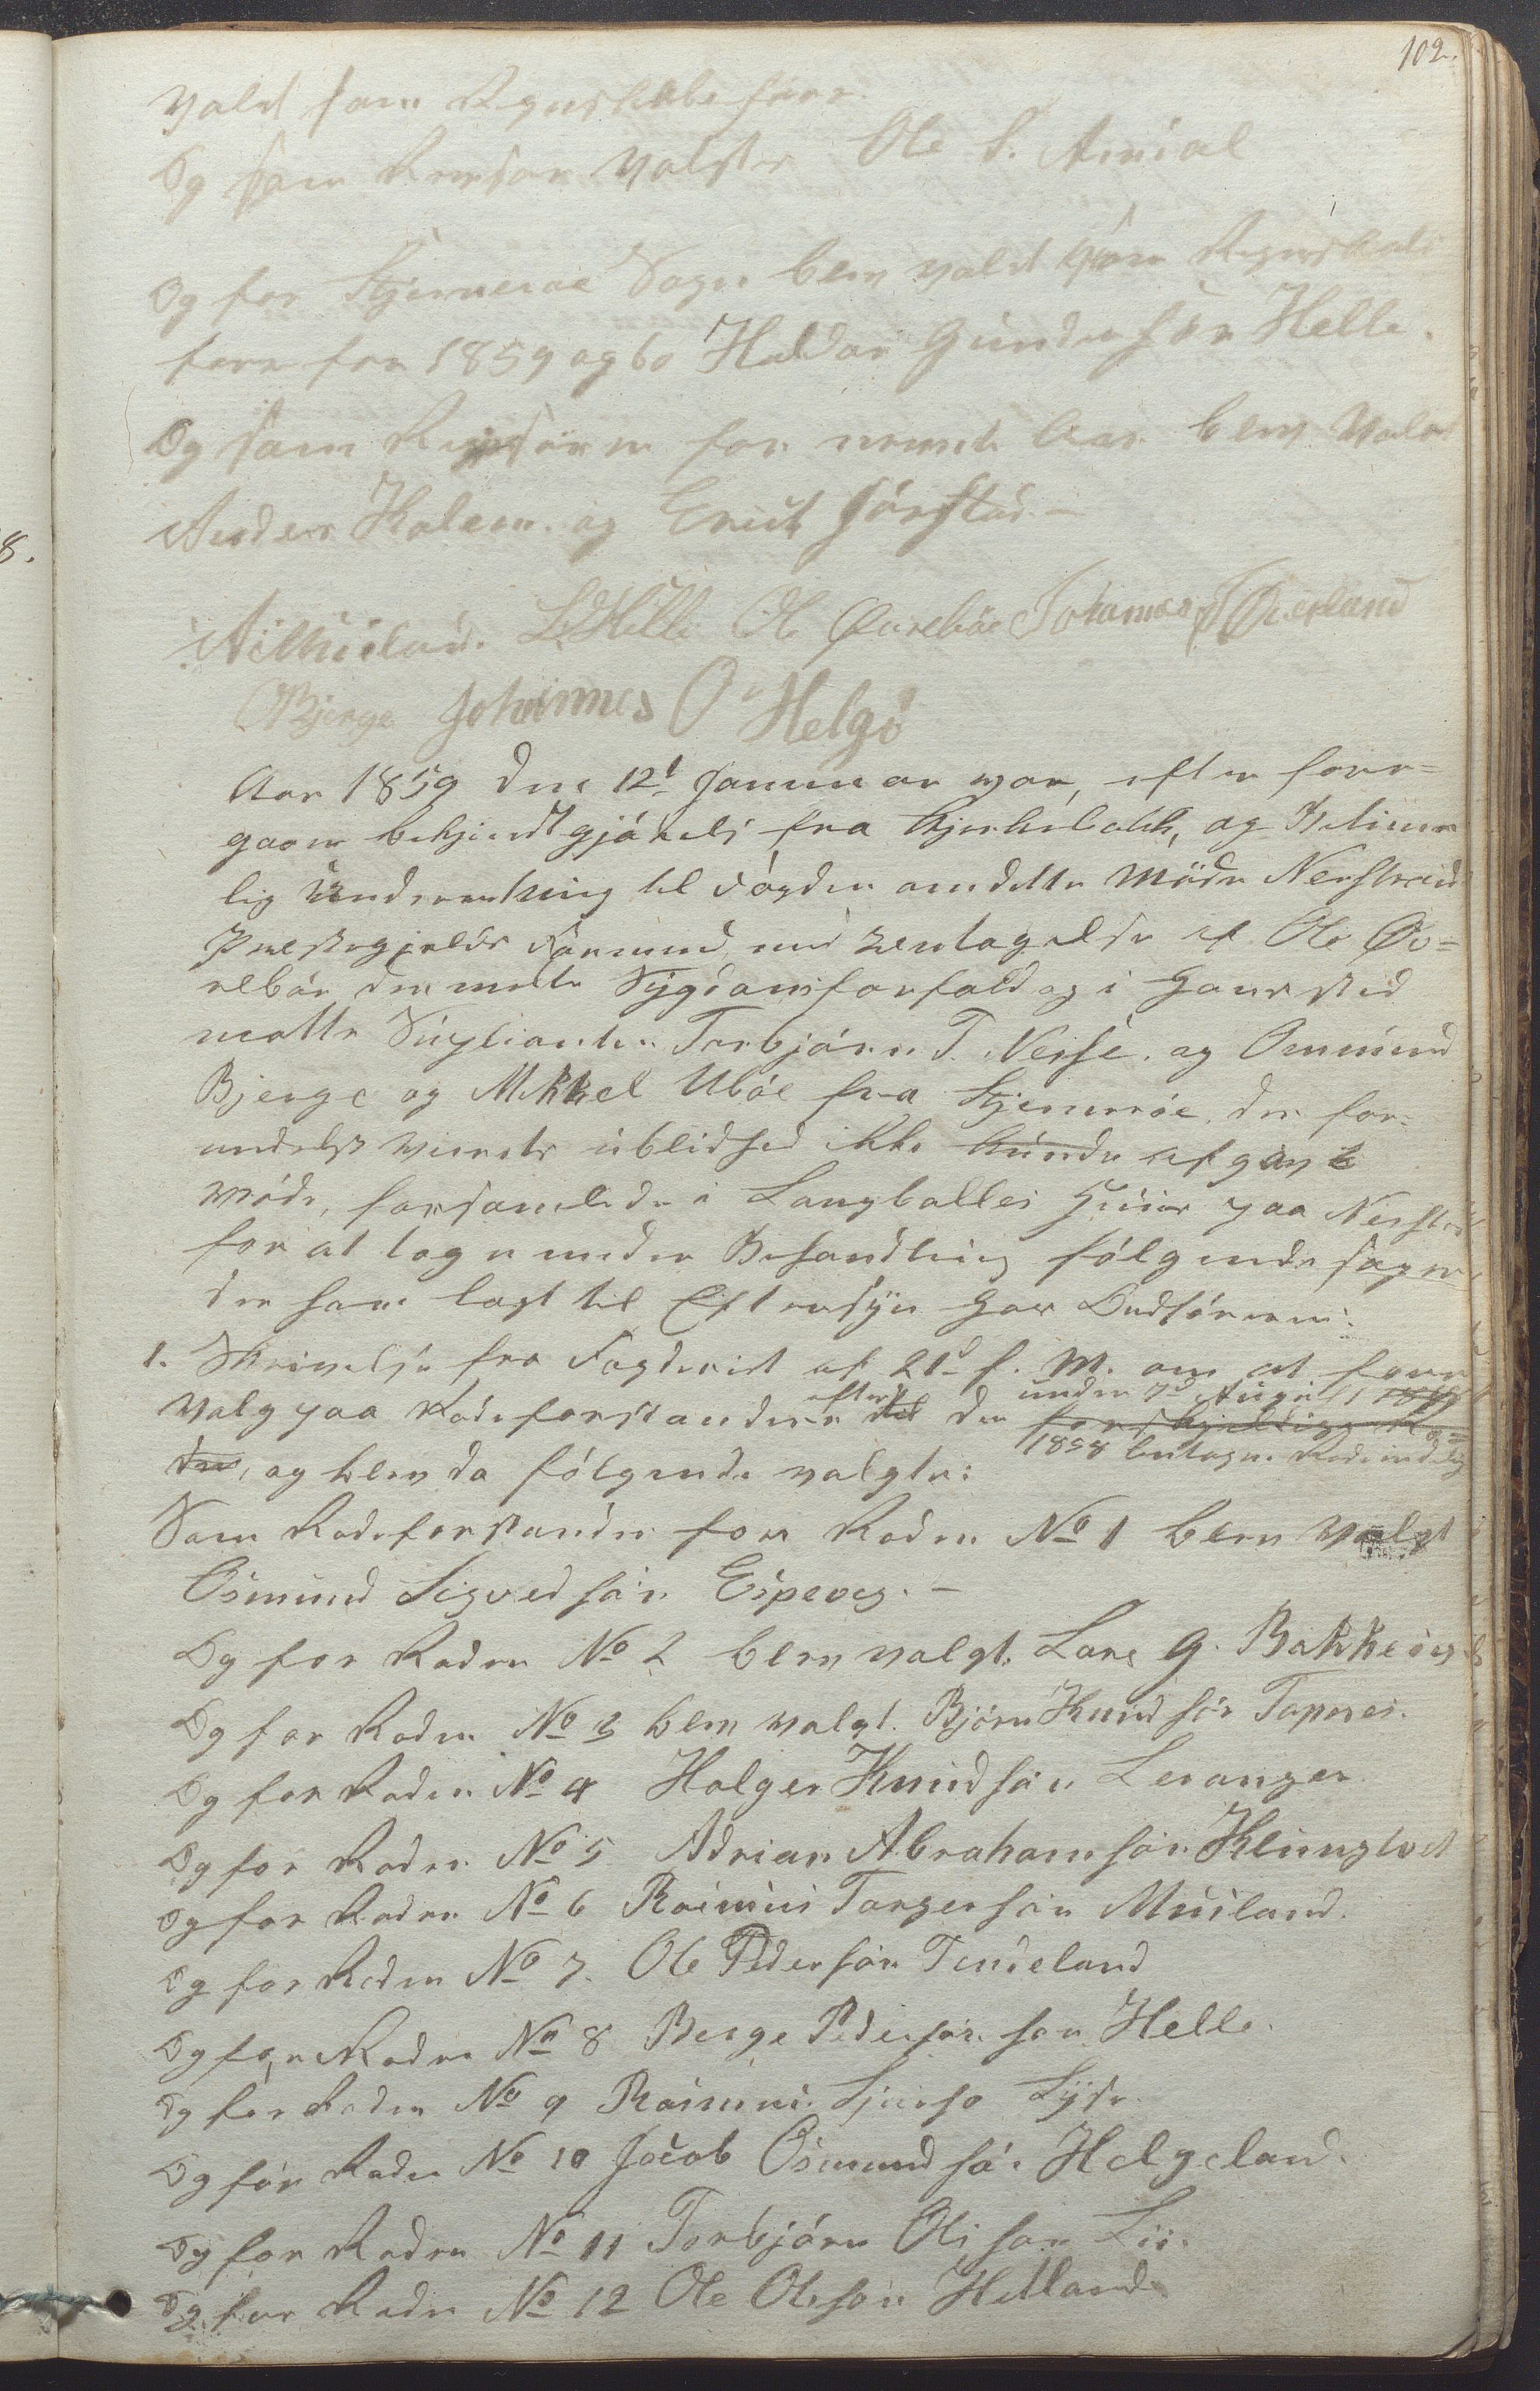 102.
Vald som Regnskabsfører
Og som Revisor Valgtes Ole S. Amdal
Og for Stjerneroe Sogn blev vald som Regnskabs
fører for 1859 og 60 Haldor Gundersøn Helle.
Og som Revisorer for nevnte Aar blev Vald
Anders Holem. og Enert Jørstad –
LHHelle Ole Øvrebøe Johannes J Øverland
OBjerge Johannes O Helgö
Aar 1859 den 12t Januuar var, efter fore-
gaaen bekjendtgjørels fra Kjerkebakk, og
lig Underretning til Fogden om dette Møde Nerstrand
Prestegjelds Formend med undtagelse af Ole Øv-
rebøe der melte Sygdomsforfald og i hans sted
møtte Supliant Torbjørn T. Nesse. og Ommund
Bjerge og Mikkel Ubøe fra Stjerneröe, der for-
mdelst Veirets ubelidhed ikke kunde afgiv
Møde, forsamlede i Langballes Huus paa Nerstr
for at tage under Behandling følgende sager
der som lagt til Eftersyn hos Ordføreren:
1. Skrivelse fra Fogderiet af 21d f. M. om at fore
Valg paa Rodeforstandere efter den under 7d August
1858 Rodeindelig
der, og blev da følgende valgte:
Som Rodeforstander for Roden No 1 blev Valgt
Osmund Sigvedsøn Espevog. –
Og for Roden No 2 blev valgt. Lars G. Bakkevig
Og for Roden No 3 blev valgt. Bjørn Knudsøn Tapnes.
Og for Roden No 4 Holger Knudsøn Leranger
Og for Roden No 5 Adrian Abrahamsøn Klungtvet
Og for Roden No 6 Rasmus Torgersøn Musland.
Og for Roden No 7. Ole Pedersøn Tindeland
Og for Roden No 8 Berge Pedersøn Helle.
Og for Roden No 9 Rasmus. Lyse.
Og for Roden No 10 Jacob Osmundsøn Helgeland.
Og for Roden No 11 Torbjørn Olson Lii.
Og for Roden No 12 Ole Olsøn Hetland